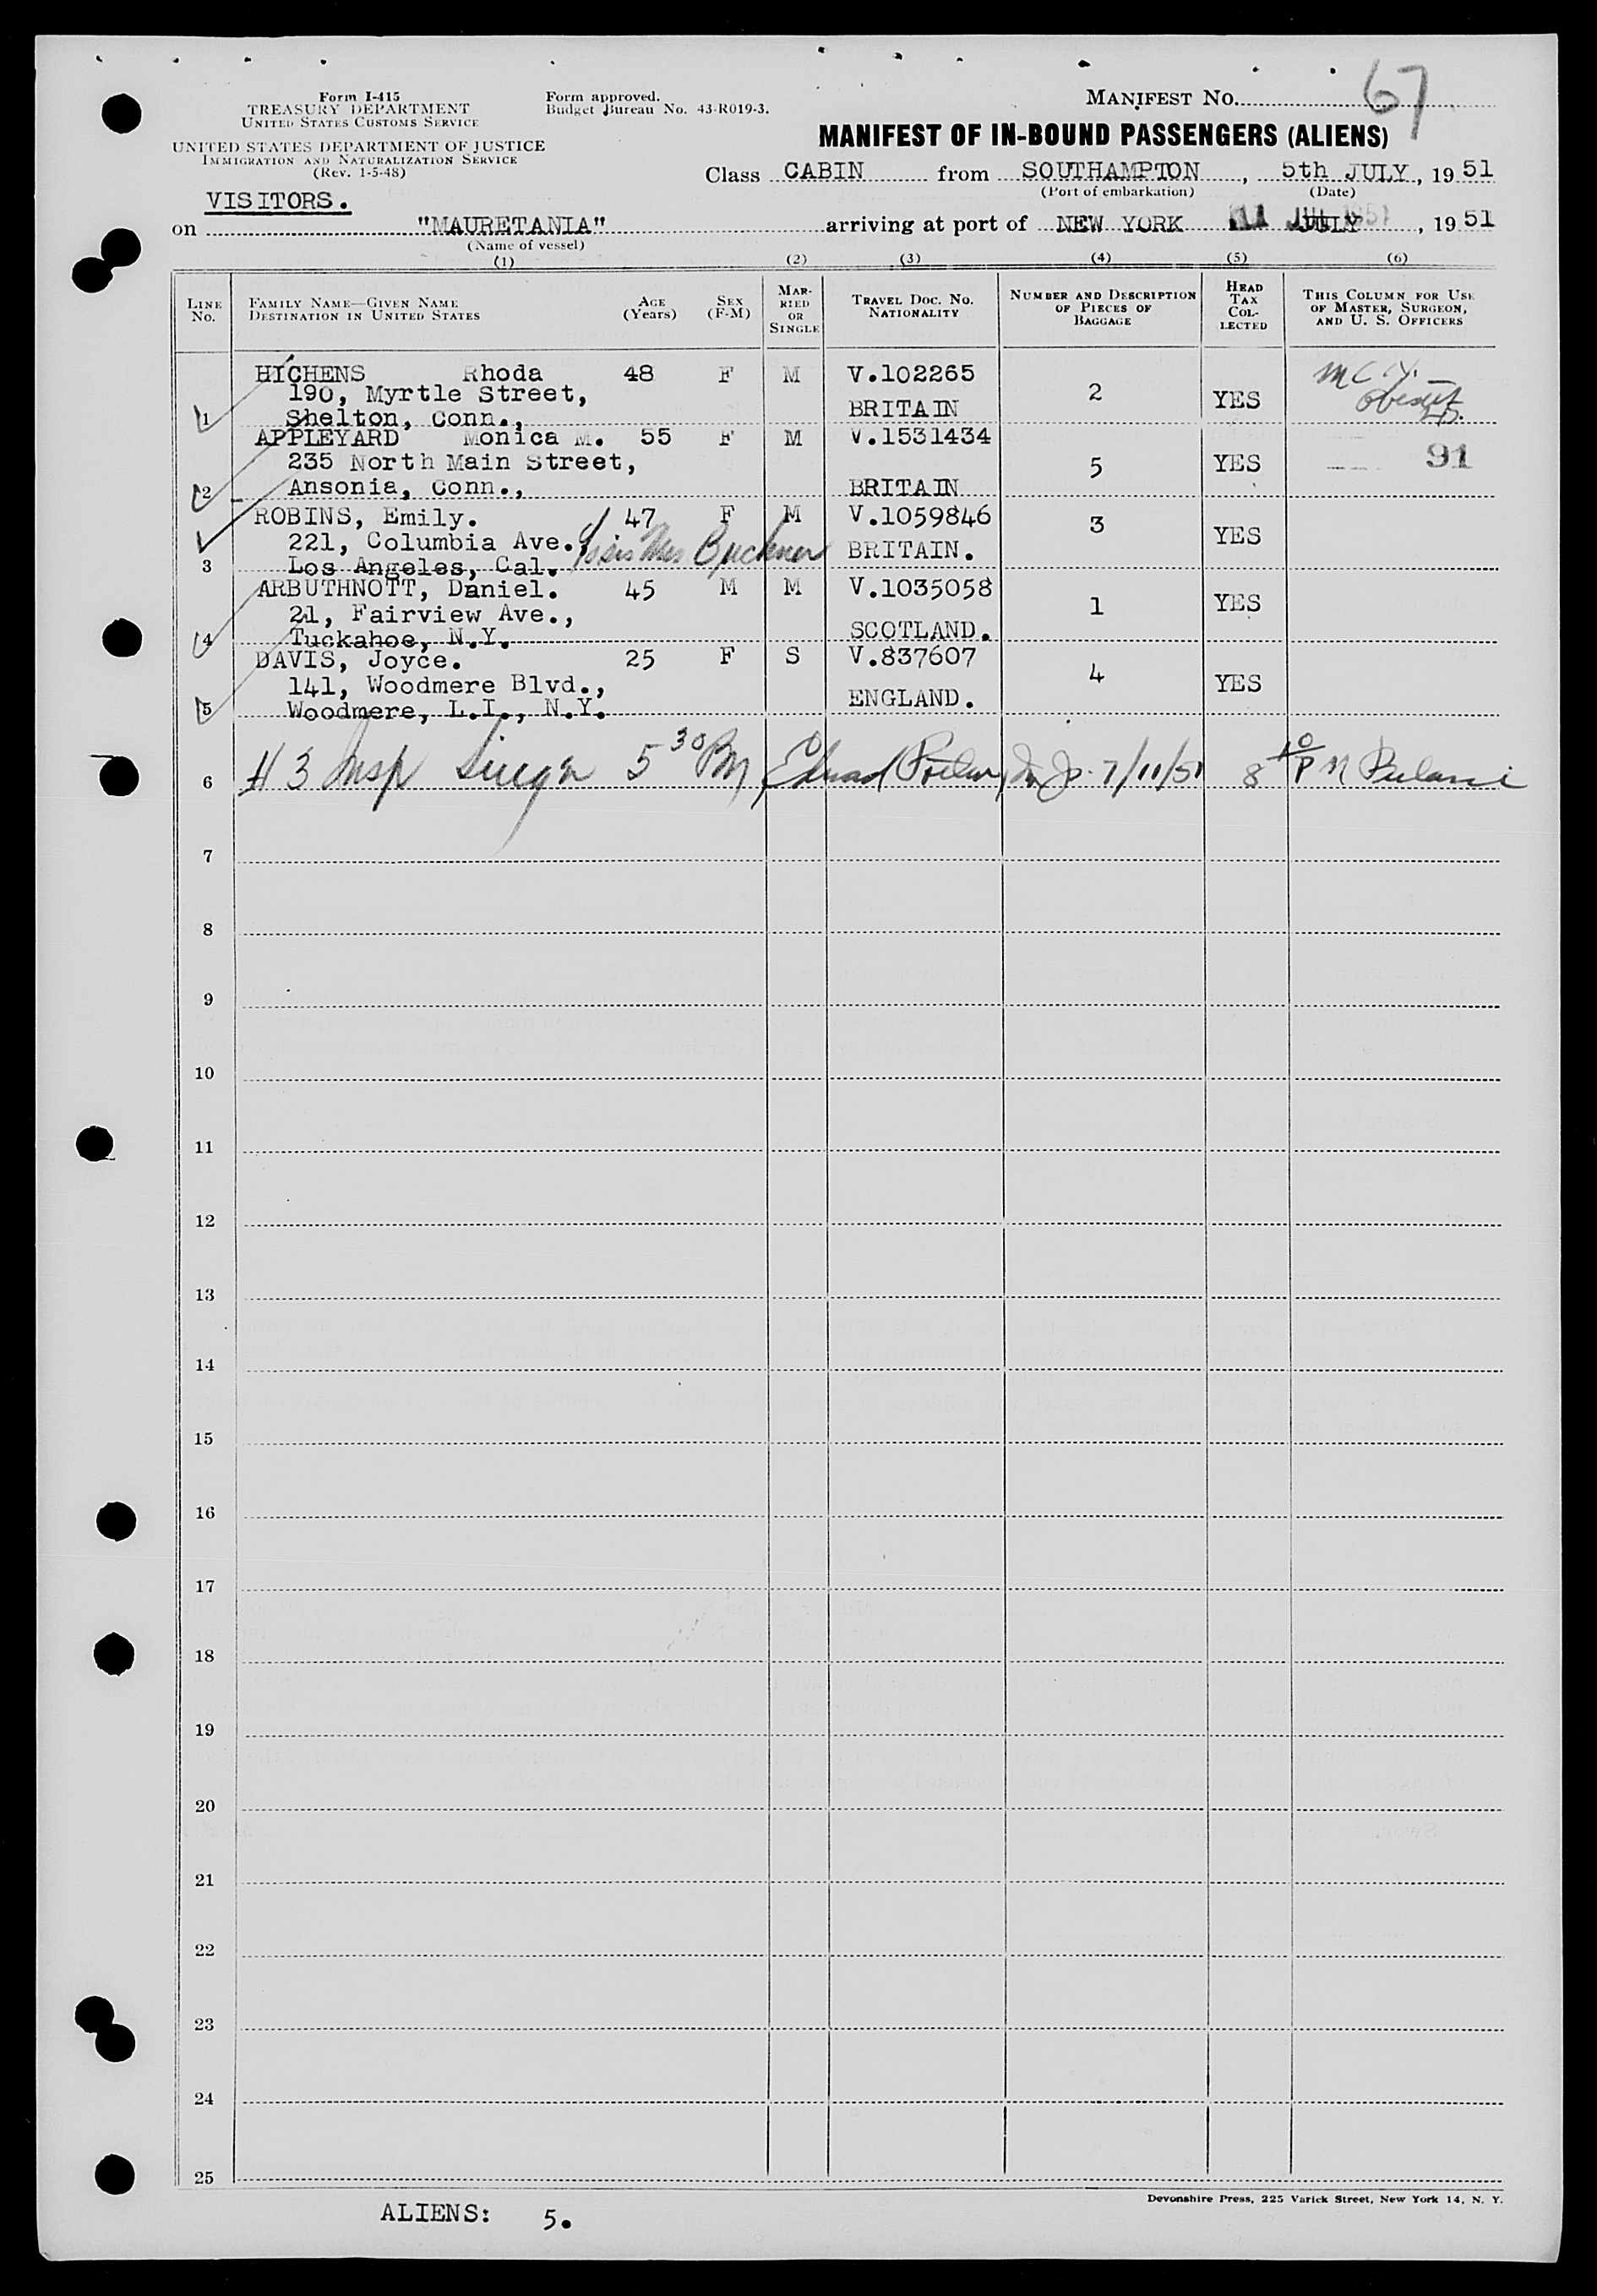 Form I-415
TREASURY DEPARTMENT
UNITED STATES CUSTOMS SERVICE
UNITED STATES DEPARTMENT OF JUSTICE
IMMIGRATION AND NATURALIZATION SERVICE
(Rev. 1-5-48)
Form approved.
Budget Bureau No. 43-R019-3.
MANIFEST NO. 67
MANIFEST OF IN-BOUND PASSENGERS (ALIENS)
Class CABIN from SOUTHAMPTON, 5th JULY, 1951
(Port of embarkation) (Date)
VISITORS.
on "MAURETANIA" arriving at port of NEW YORK 11 JULY, 1951
(Name of vessel)
(1) (2) (3) (4) (5) (6)
LINE NO.
FAMILY NAME—GIVEN NAME
DESTINATION IN UNITED STATES
AGE (Years)
SEX (F-M)
MARRIED OR SINGLE
TRAVEL DOC. NO. NATIONALITY
NUMBER AND DESCRIPTION OF PIECES OF BAGGAGE
HEAD TAX COLLECTED
THIS COLUMN FOR USE OF MASTER, SURGEON, AND U. S. OFFICERS
1 HICHENS Rhoda 48 F M V.102265 2 YES
190, Myrtle Street,
Shelton, Conn., BRITAIN
2 APPLEYARD Monica M. 55 F M V.1531434 5 YES 91
235 North Main Street,
Ansonia, Conn., BRITAIN
3 ROBINS, Emily. 47 F M V.1059846 3 YES
221, Columbia Ave., Mrs Buckner BRITAIN.
Los Angeles, Cal.
4 ARBUTHNOTT, Daniel. 45 M M V.1035058 1 YES
21, Fairview Ave.,
Tuckahoe, N.Y. SCOTLAND.
5 DAVIS, Joyce. 25 F S V.837607 4 YES
141, Woodmere Blvd.,
Woodmere, L.I., N.Y. ENGLAND.
6 # 3 Insp 5 30 PM 7/11/51 8
7
8
9
10
11
12
13
14
15
16
17
18
19
20
21
22
23
24
25
Devonshire Press, 225 Varick Street, New York 14, N. Y.
ALIENS: 5.